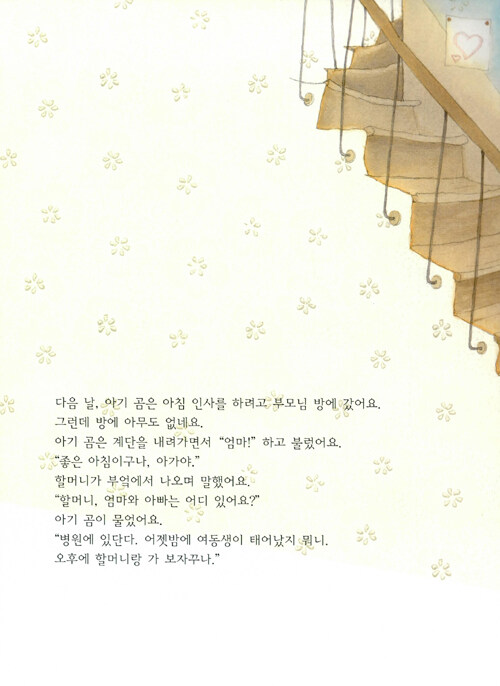 다음 날, 아기 곰은 아침 인사를 하려고 부모님 방에 갔어요.
그런데 방에 아무도 없네요.
아기 곰은 계단을 내려가면서 “엄마!” 하고 불렀어요.
“좋은 아침이구나, 아가야.”
할머니가 부엌에서 나오며 말했어요.
“할머니, 엄마와 아빠는 어디 있어요?”
아기 곰이 물었어요.
“병원에 있단다. 어젯밤에 여동생이 태어났지 뭐니.
오후에 할머니랑 가 보자꾸나.”